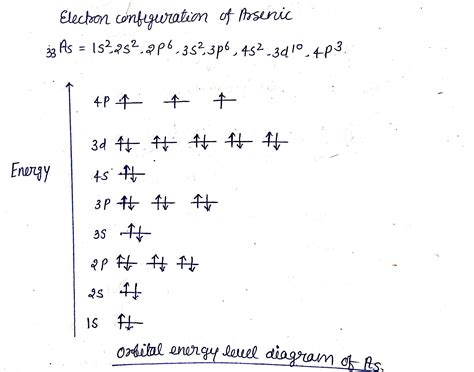 Electron configuration of Arsenic
₃₃As = 1s², 2s², 2p⁶, 3s², 3p⁶, 4s², 3d¹⁰, 4p³.
4p ↑ ↑ ↑
3d ↑↓ ↑↓ ↑↓ ↑↓ ↑↓
Energy
4s ↑↓
3p ↑↓ ↑↓ ↑↓
3s ↑↓
2p ↑↓ ↑↓ ↑↓
2s ↑↓
1s ↑↓
Orbital energy level diagram of As.